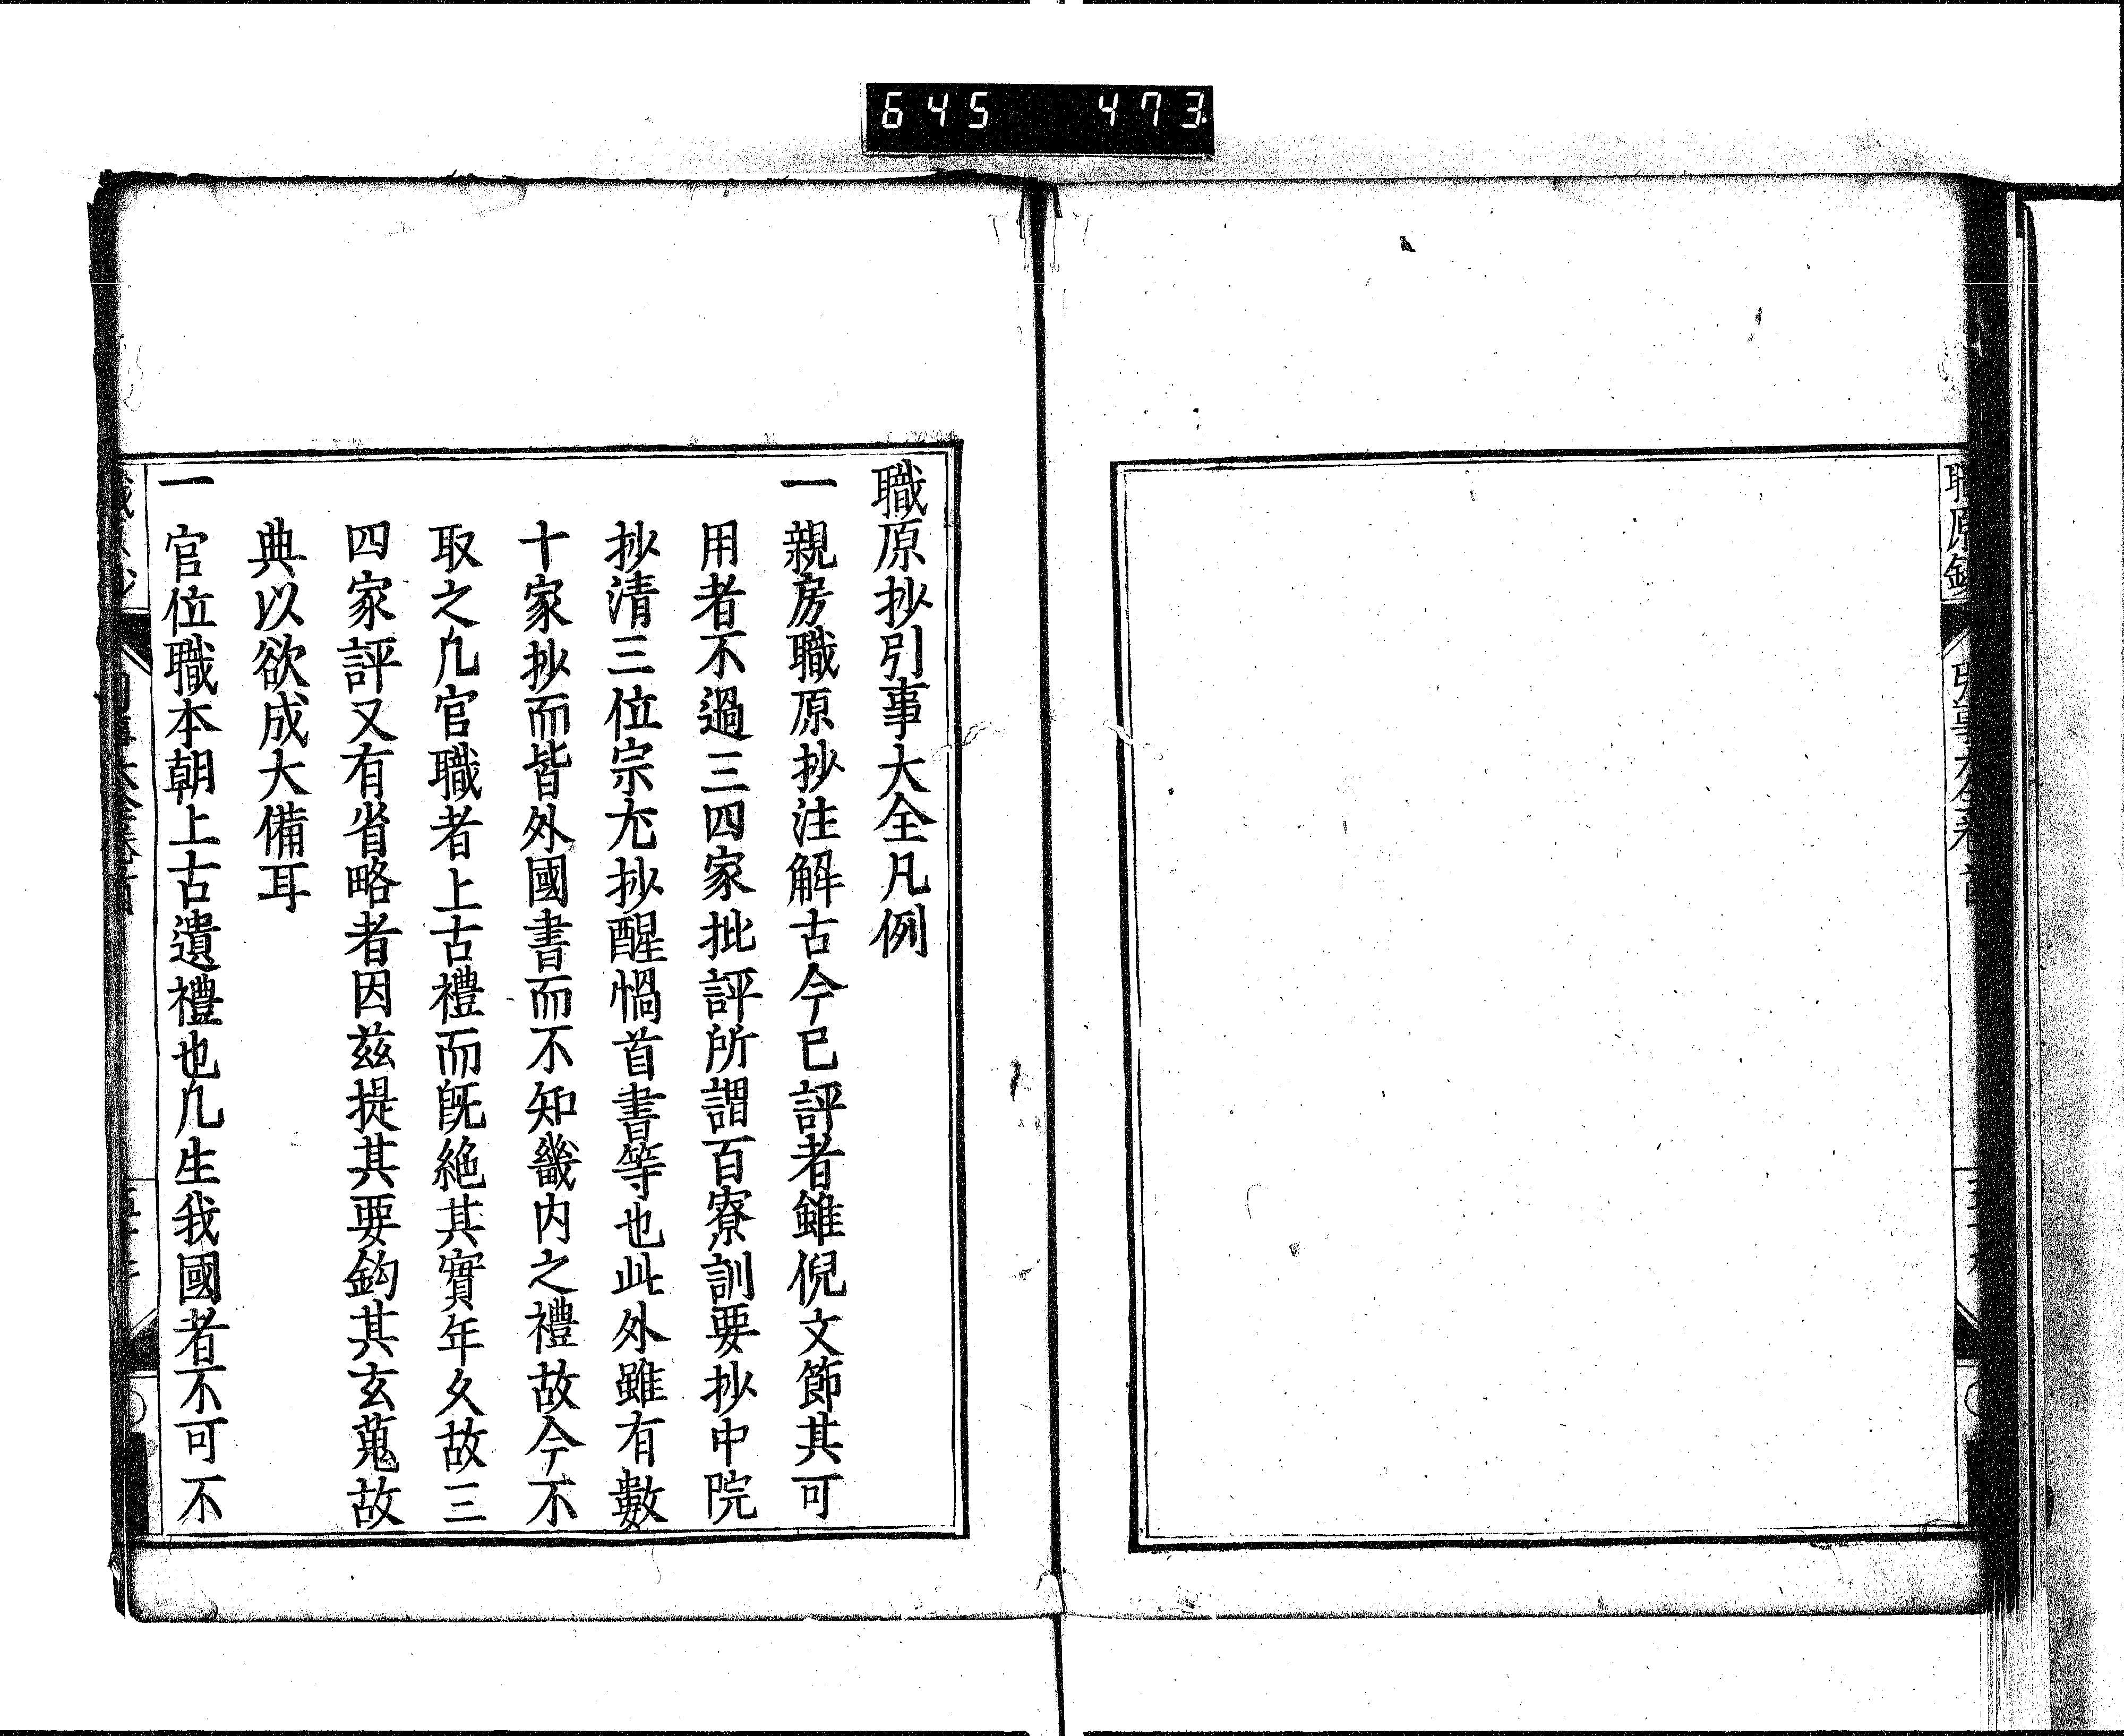 645 473
職原鈔 引事大全卷首
職原抄引事大全凡例
一親房職原抄注解古今已評者雖倪文節其可
用者不過三四家批評所謂百寮訓要抄中院
抄清三位宗尤抄醒㥬首書等也此外雖有數
十家抄而皆外國書而不知畿内之禮故今不
取之凢官職者上古禮而既絶其實年久故三
四家評又有省略者因茲提其要鈎其玄蒐故
典以欲成大備耳
一官位職本朝上古遺禮也凢生我國者不可不